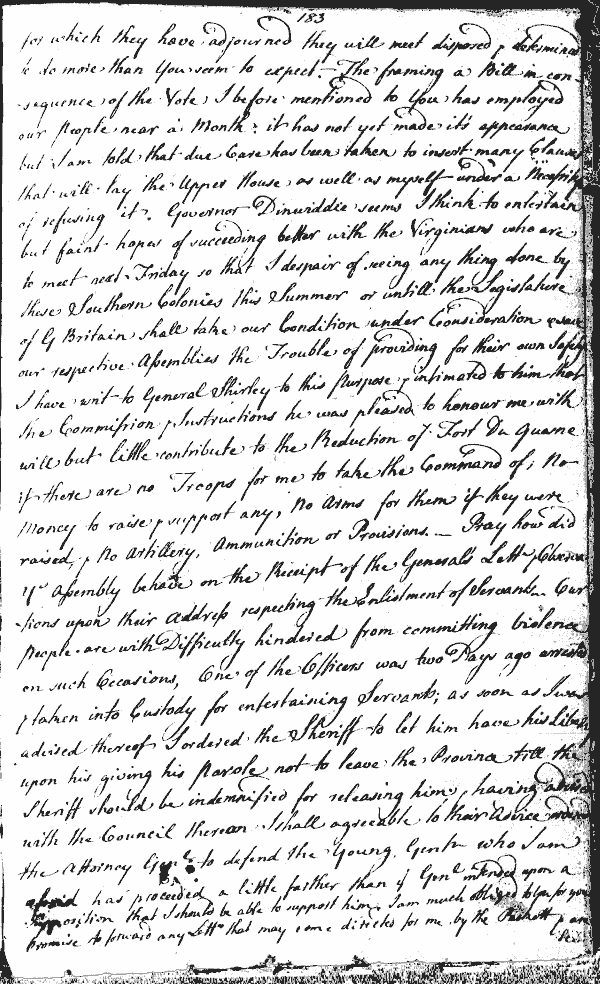 183
for which they have adjourned they will meet disposed & determined
to do more than You seem to expect. – The framing a Bill in con-
-sequence of the Vote I before mentioned to You has employed
our People near a Month; it has not yet made it's appearance
but I am told that due Care has been taken to insert many Clauses
that will lay the Upper House as well as myself under a Necessity
of refusing it. Governor Dinwiddie seems I think to entertain
but faint hopes of succeeding better with the Virginians who are
to meet next Friday so that I despair of seeing any thing done by
these Southern Colonies this Summer or untill the Legislature
of G Britain shall take our Condition under Consideration & save
our respective Assemblies the Trouble of providing for their own Safety
I have writ to General Shirley to this Purpose & intimated to him that
the Commission & Instructions he was pleased to honour me with
will but little contribute to the Reduction of Fort Du Quesne
if there are no Troops for me to take the Command of; No
Money to raise & support any, No Arms for them if they were
raised, & No Artillery, Ammunition or Provisions. — Pray how did
yr Assembly behave on the Receipt of the General's Lettr & Observa
-tions upon their Address respecting the Enlistment of Servants. Our
People are with Difficulty hindered from committing Violence
on such Occasions, One of the Officers was two Days ago arrested
& taken into Custody for entertaining Servants; as soon as I was
advised thereof I ordered the Sheriff to let him have his Liberty
upon his giving his Parole not to leave the Province till the
Sheriff should be indemnified for releasing him, & having advised
with the Council thereon I shall agreeable to their Advice
the Attorney Genl to defend the Young Gentn who I am
afraid has proceeded a little farther than ye Genl intended upon a
Supposition that I should be able to support him. I am much obliged to You for your
promise to forward any Lettrs that may come directed for me by the Packett & am